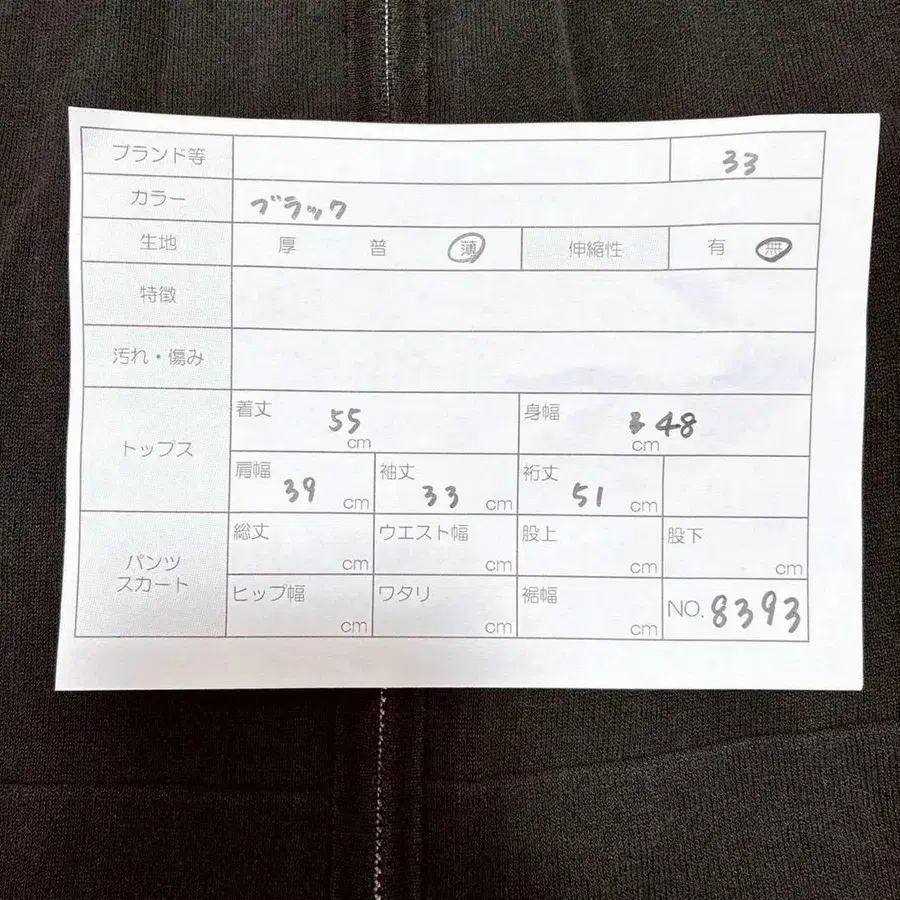 ブランド等 33
カラー ブラック
生地 厚 普 薄 伸縮性 有 無
特徴
汚れ・傷み
トップス
着丈 55 cm 身幅 48 cm
肩幅 39 cm 袖丈 33 cm 裄丈 51 cm
パンツ
スカート
総丈 cm ウエスト幅 cm 股上 cm 股下 cm
ヒップ幅 cm ワタリ cm 裾幅 cm NO. 8393